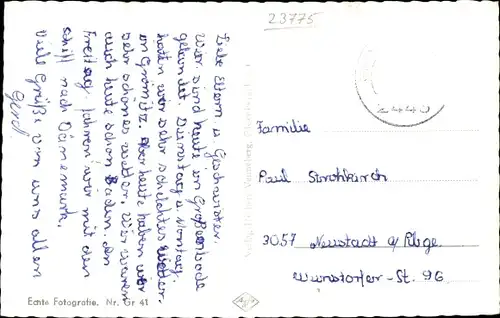 23775
Liebe Eltern u. Geschwister.
Wir sind heute in Großenbode
gelandet. Dienstag u. Montag
hatten wir sehr schlechtes Wetter
in Grömitz. Aber heute haben wir
sehr schönes Wetter. Wir waren
auch heute schon Baden. Am
Freitag fahren wir mit den
schiff nach Dänemark.
Viele Grüße von uns allen
Familie
Paul Strohkirch
3057 Neustadt a/Rbge.
Wunstorfer-St. 96
Echte Fotografie. Nr. Gr 41
Agfa